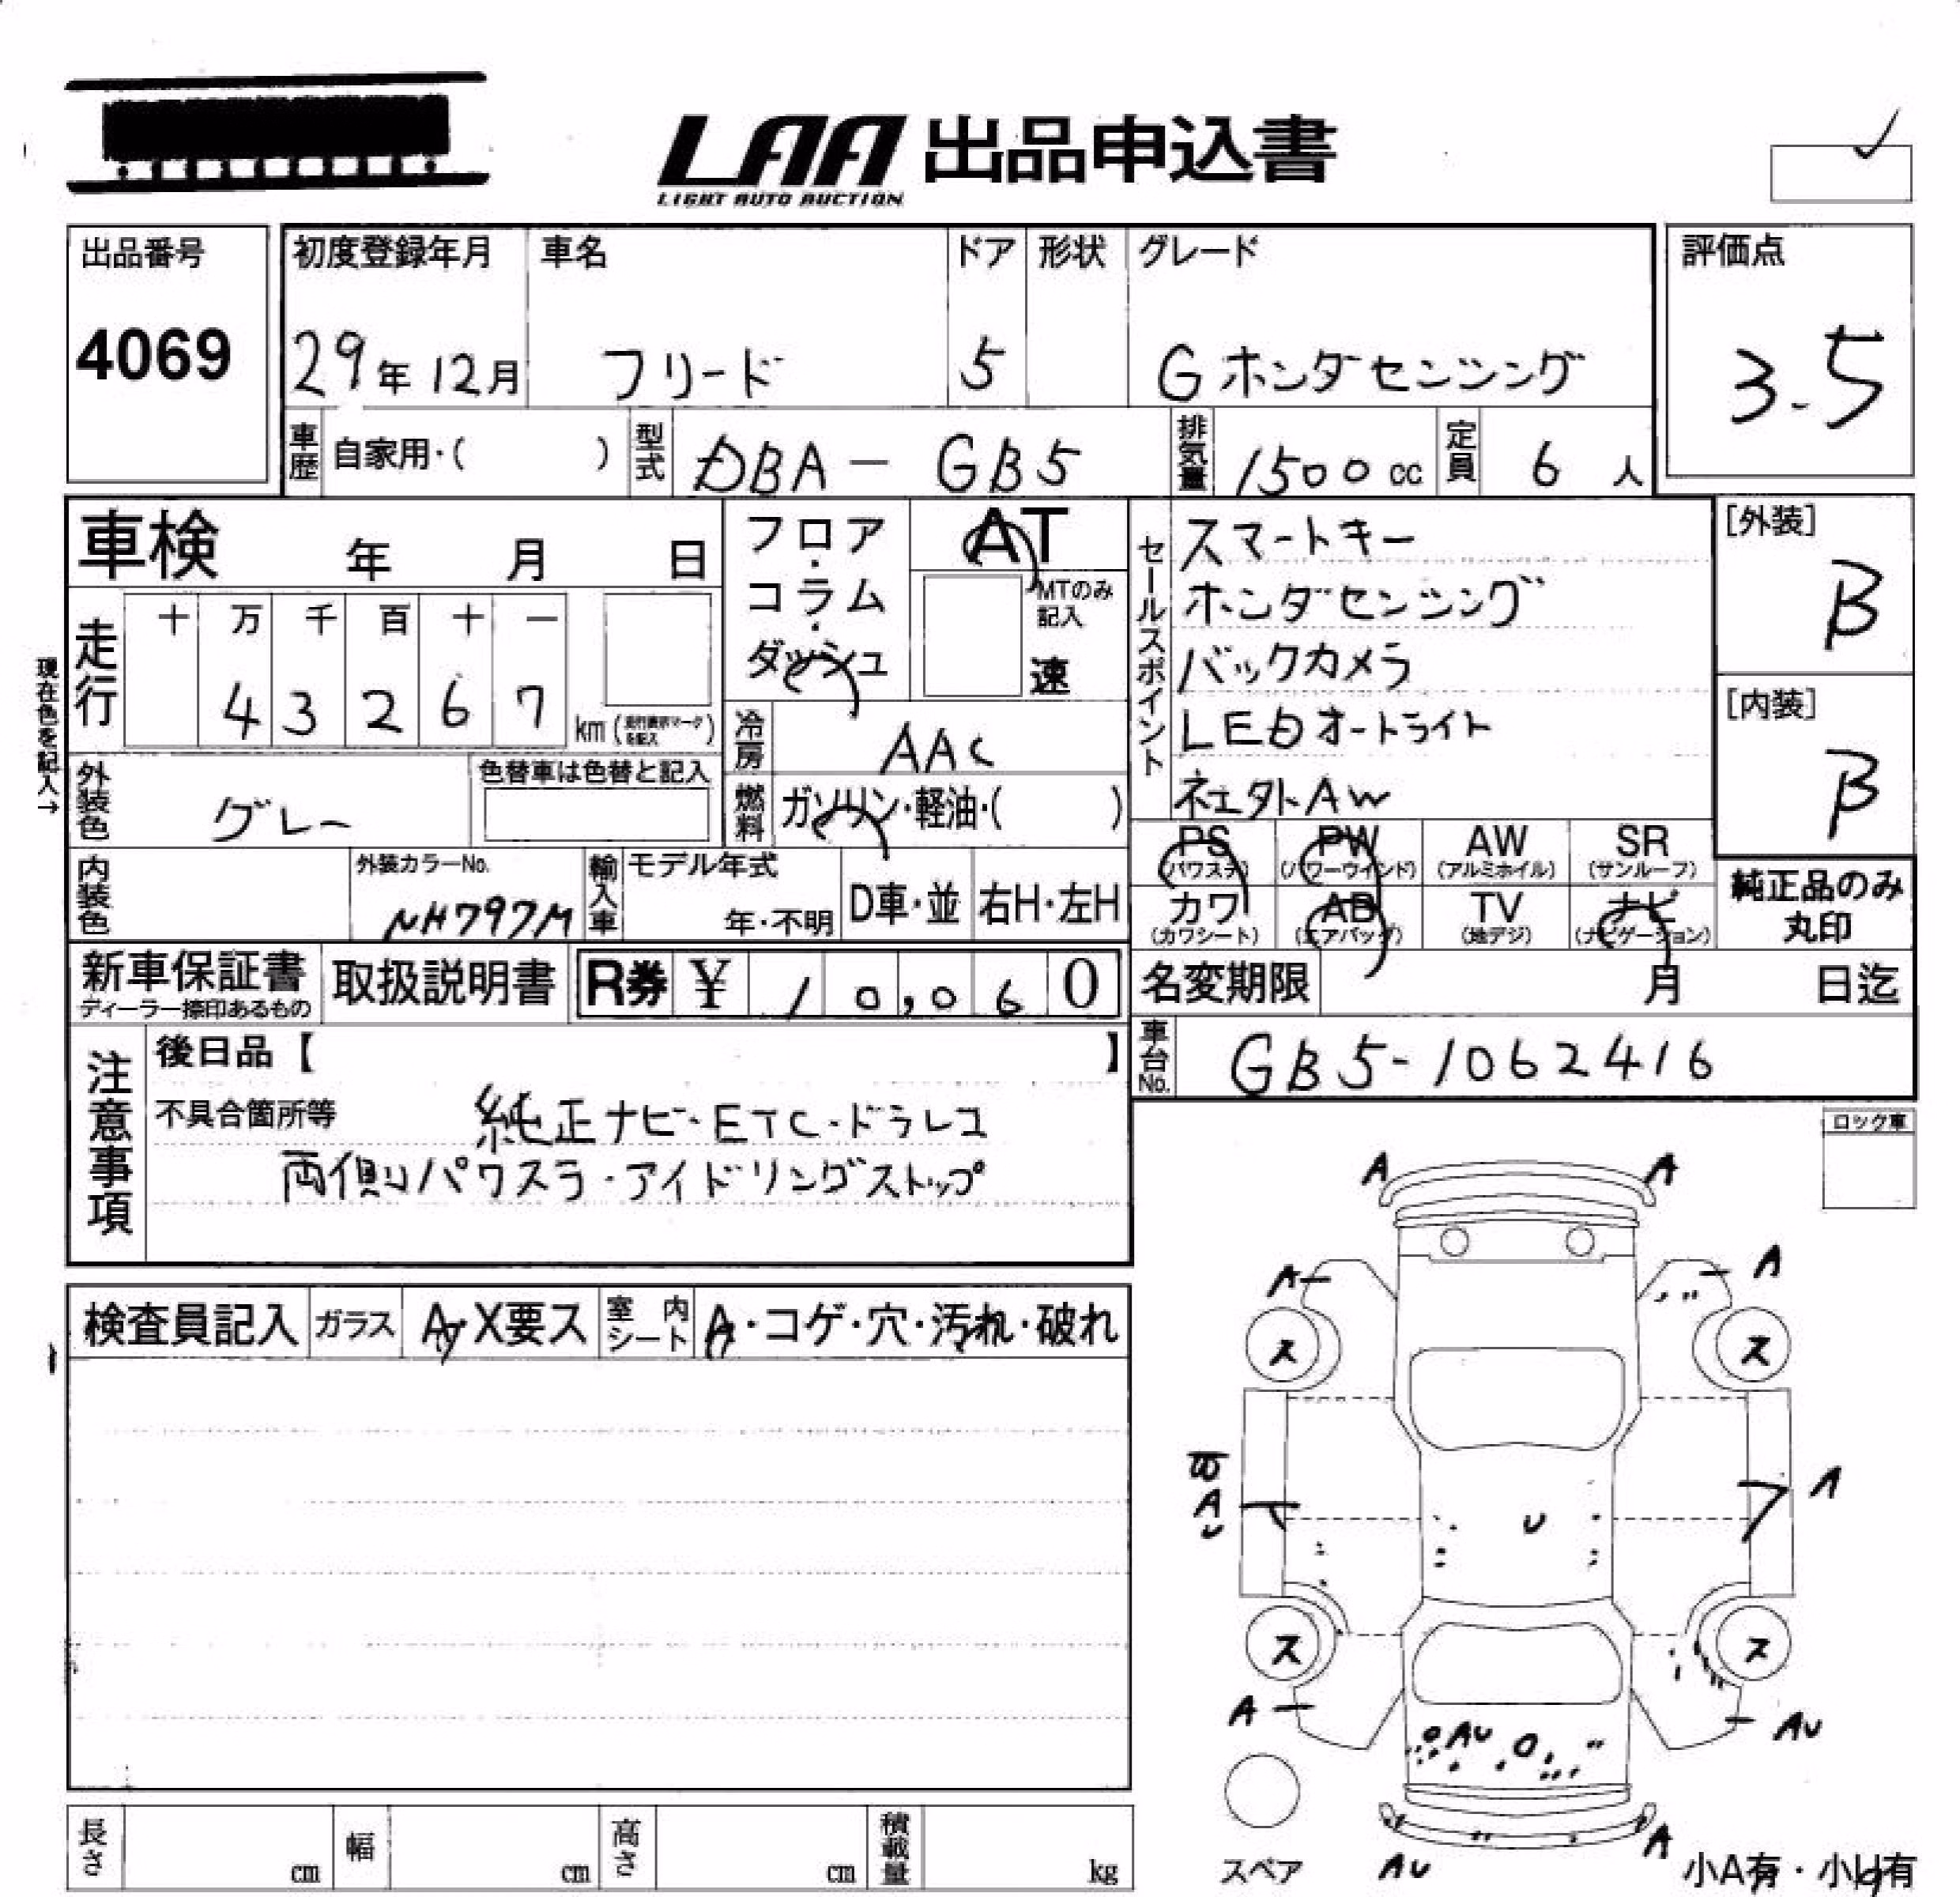 LAA 出品申込書
LIGHT AUTO AUCTION
出品番号
4069
初度登録年月
29年12月
車名
フリード
ドア
5
形状
グレード
Gホンダセンシング
評価点
3.5
車歴 自家用・( )
型式 DBA - GB5
排気量 1500 cc
定員 6 人
車検 年 月 日
フロア・コラム・ダッシュ
AT
MTのみ記入
速
セールスポイント
スマートキー
ホンダセンシング
バックカメラ
LEDオートライト
社外AW
[外装]
B
[内装]
B
現在色を記入→
走行
十 万 千 百 十 一
4 3 2 6 7
km(走行表示マークを記入)
冷房 AAC
外装色 グレー
色替車は色替と記入
燃料 ガソリン・軽油・( )
PS (パワステ)
PW (パワーウインド)
AW (アルミホイル)
SR (サンルーフ)
カワ (カワシート)
AB (エアバッグ)
TV (地デジ)
ナビ (ナビゲーション)
純正品のみ
丸印
内装色
外装カラーNo.
NH797M
輸入車
モデル年式
年・不明
D車・並
右H・左H
新車保証書
ディーラー捺印あるもの
取扱説明書
R券 ¥ 10,060
名変期限 月 日迄
車台No. GB5-1062416
注意事項
後日品【 】
不具合箇所等 純正ナビ・ETC・ドラレコ
両側パワスラ・アイドリングストップ
ロック車
A A
A A
ス ス
B
A
U
U
A
ス ス
A
AU
AU
AU
A
検査員記入
ガラス A・X要ス
室内シート A・コゲ・穴・汚れ・破れ
長さ cm
幅 cm
高さ cm
積載量 kg
スペア
小A有・小U有